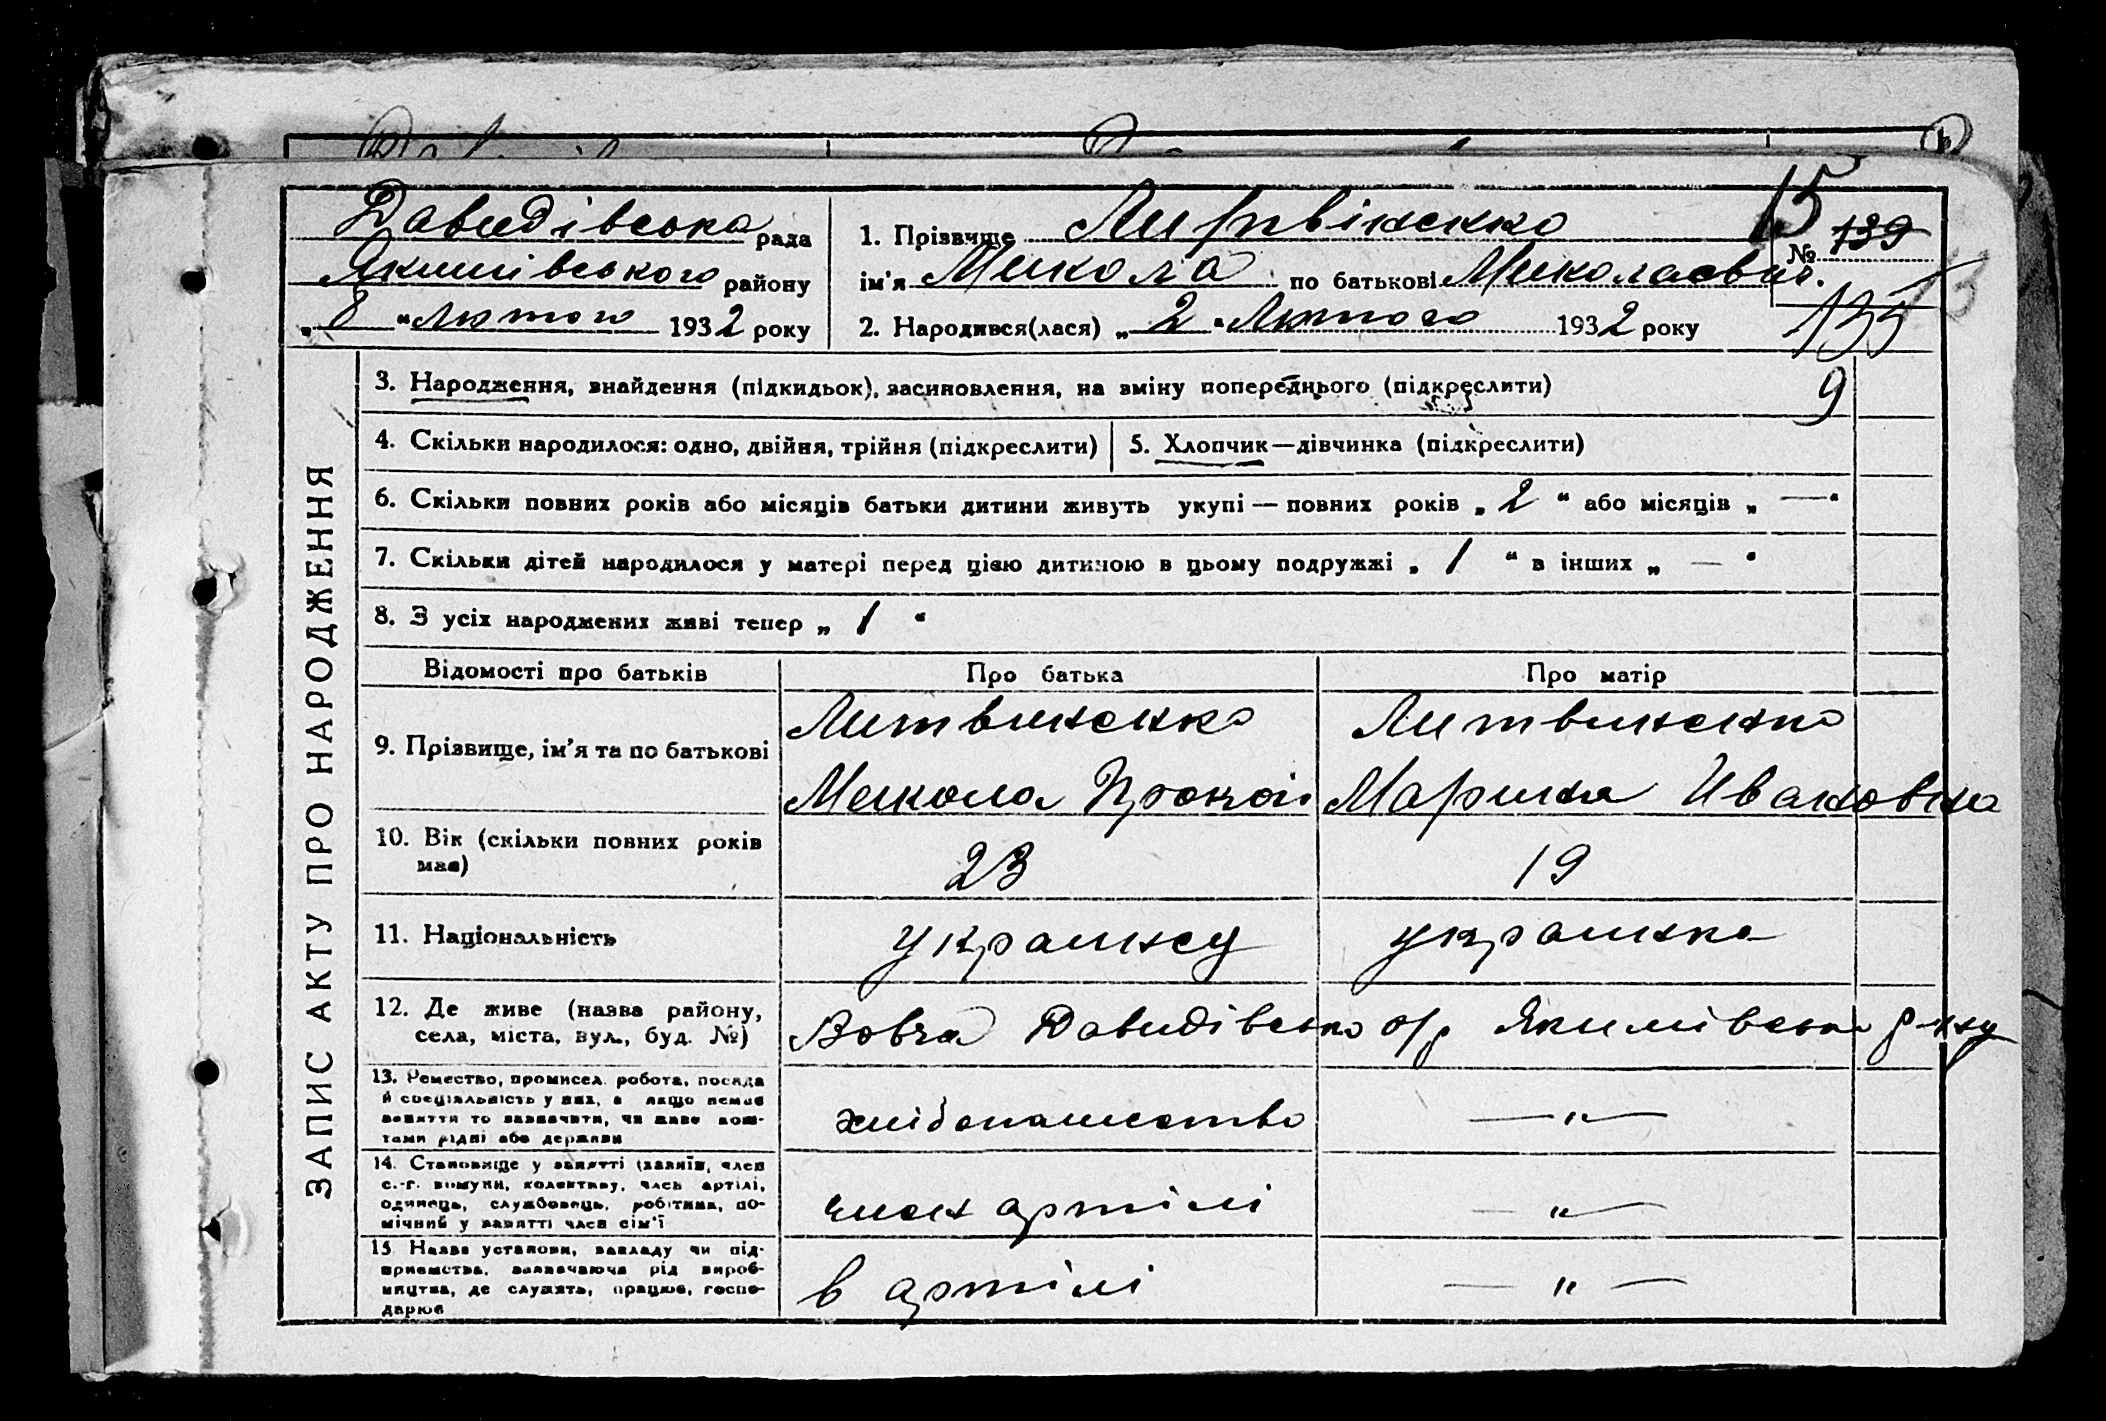 Давидівська рада
Якимівського району
„ 8 “ Лютого 1932 року
1. Прізвище Литвіненко
ім'я Микола по батькові Миколаєвич.
2. Народився(лася) „ 2 “ Лютого 1932 року
15
№ 139
135
13
9
ЗАПИС АКТУ ПРО НАРОДЖЕННЯ
3. Народження, знайдення (підкидьок), засиновлення, на зміну попереднього (підкреслити)
4. Скільки народилося: одно, двійня, трійня (підкреслити)
5. Хлопчик—дівчинка (підкреслити)
6. Скільки повних років або місяців батьки дитини живуть укупі — повних років „ 2 “ або місяців „ — “
7. Скільки дітей народилося у матері перед цією дитиною в цьому подружжі „ 1 “ в інших „ — “
8. З усіх народжених живі тепер „ 1 “
Відомості про батьків
Про батька
Про матір
9. Прізвище, ім'я та по батькові
Литвиненко
Микола
Литвиненко
Марина Ивановна
10. Вік (скільки повних років має)
23
19
11. Національність
украинец
украинка
12. Де живе (назва району,
села, міста, вул., буд. №)
Вовча Давидівсько с/р Якимівсько р-ну
13. Ремество, промисел, робота, посада
й спеціальність у них, а якщо немає
заняття то зазначити, чи живе кош-
тами рідні або держави
хлібопашество
— „ —
14. Становище у занятті (хазяїн, член
с.-г. комуни, колективу, член артілі,
одинець, службовець, робітник, по-
мічний у занятті член сім'ї
член артілі
— „ —
15. Назва установи, закладу чи під-
приємства, зазначаючи рід вироб-
ництва, де служить, працює, госпо-
дарює
в артілі
— „ —